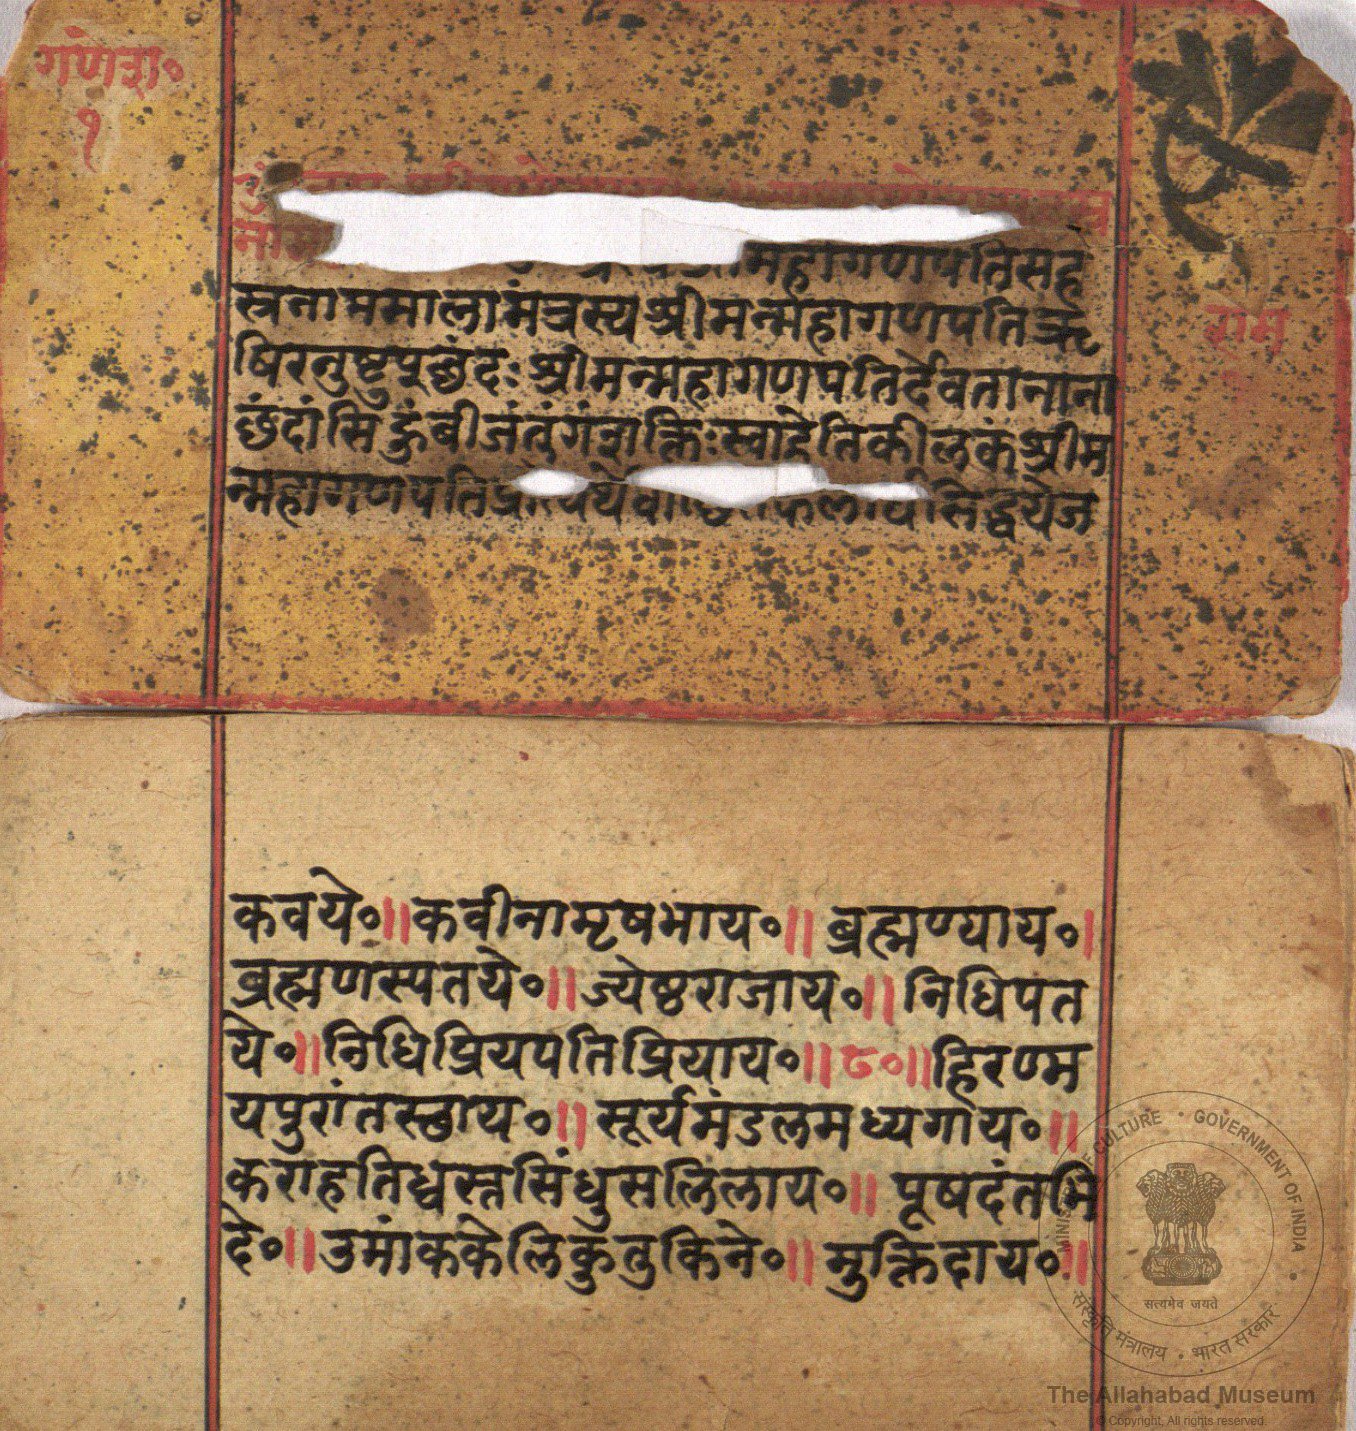 गणेश॰
१
महागणपतिसह
स्त्रनाममालामंत्रस्य श्रीमन्महागणपति ऋ
षिरनुष्टुप्छंदः श्रीमन्महागणपतिर्देवतानाना
छंदांसि हुंबीजंतुंगंशक्तिः स्वाहेतिकीलकंश्रीम
न्महागणपति सिद्धयेज
राम
कवये॰॥कवीनामृषभाय॰॥ ब्रह्मण्याय॰।
ब्रह्मणस्पतये॰॥ ज्येष्ठराजाय॰॥ निधिपत
ये॰॥निधिप्रियपतिप्रियाय॰॥८०॥हिरण्म
यपुरांतस्छाय॰॥ सूर्यमंडलमध्यगाय॰॥
कराहतिध्वस्तसिंधुसलिलाय॰॥ पूषदंतभि
दे॰॥उमांककेलिकुतुकिने॰॥ मुक्तिदाय॰॥
MINISTRY OF CULTURE • GOVERNMENT OF INDIA
सत्यमेव जयते
संस्कृति मंत्रालय • भारत सरकार
The Allahabad Museum
© Copyright, All rights reserved